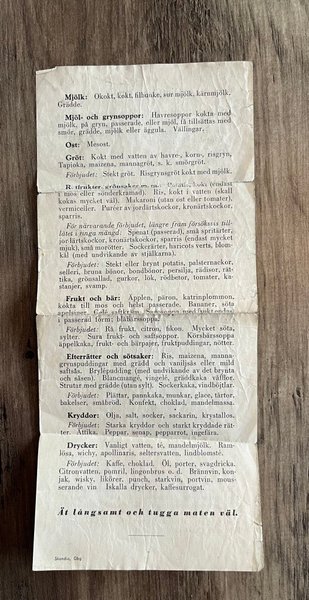 Mjölk: Okokt, kokt, filbunke, sur mjölk, kärnmjölk,
Grädde.
Mjöl- och grynsoppor: Havresoppor kokta med
mjölk, på gryn, passerade, eller mjöl, få tillsättas med
smör, grädde, mjölk eller äggula. Vällingar.
Ost: Mesost.
Gröt: Kokt med vatten av havre-, korn-, risgryn,
Tapioka, maizena, mannagröt, s. k. smörgröt.
Förbjudet: Stekt gröt. Risgrynsgröt kokt med mjölk.
grönsaker m. m.: (endast
i mos eller sönderkramad). Ris, kokt i vatten (skall
kokas mycket väl). Makaroni (utan ost eller tomater),
vermiceller. Puréer av jordärtskockor, kronärtskockor,
sparris.
För närvarande förbjudet, längre fram försöksvis till-
låtet i ringa mängd: Spenat (passerad), små spritärter,
jordärtskockor, kronärtskockor, sparris (endast mycket
mjuk), små morötter. Sockerärter, haricots verts, blom-
kål (med undvikande av stjälkarna).
Förbjudet: Stekt eller brynt potatis, palsternackor,
selleri, bruna bönor, bondbönor, persilja, rädisor, rät-
tika, grönsallad, gurkor, lök, rödbetor, tomater, kål-
rötter, kål, svamp.
Frukt och bär: Äpplen, päron, katrinplommon,
kokta till mos och helst passerade. Bananer, söta
apelsiner. Gelé, saftkräm. med frukt endast
i passerad form; blåbärssoppa.
Förbjudet: Rå frukt, citron, fikon. Mycket söta,
sylter. Sura frukt- och saftsoppor. Körsbärssoppa
äppelkaka, frukt- och bärpajer, fruktpuddingar, nötter.
Efterrätter och sötsaker: Ris, maizena, manna-
grynspuddingar med grädd och vaniljsås eller mild
saftsås. Brylépudding (med undvikande av det brynta
och såsen). Blancmangé, vingelé, gräddkaka våfflor.
Strutar med grädde (utan sylt). Sockerkaka, vindböjtlar.
Förbjudet: Plättar, pannkaka, munkar, glace, tårtor,
bakelser, småbröd. Konfekt, choklad, mandelmassa.
Kryddor: Olja, salt, socker, sackarin, krystallos.
Förbjudet: Starka kryddor och starkt kryddade rät-
ter. Ättika. Peppar, senap, pepparrot, ingefära.
Drycker: Vanligt vatten, té, mandelmjölk. Ram-
lösa, wichy, apollinaris, seltersvatten, lindblomsté.
Förbjudet: Kaffe, choklad. Öl, porter, svagdricka.
Citronvatten, pomril, lingonbrus o. d. Brännvin, kon-
jak, wisky, likörer, punch, starkvin, portvin, mous-
serande vin Iskalla drycker, kaffesurrogat.
Ät långsamt och tugga maten väl.
Skandia, Gbg